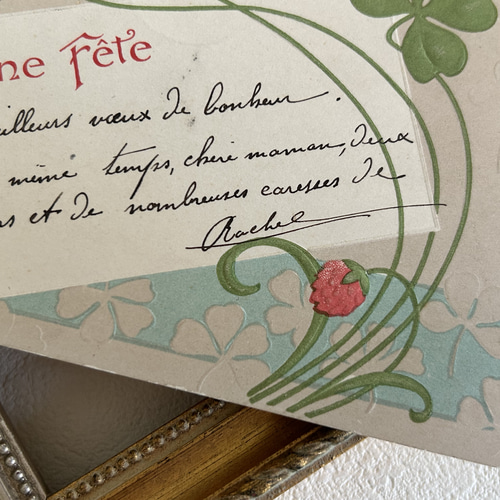 ne Fête
illeurs vœux de bonheur.
même temps, chère maman, deux
et de nombreuses caresses de
Rachel